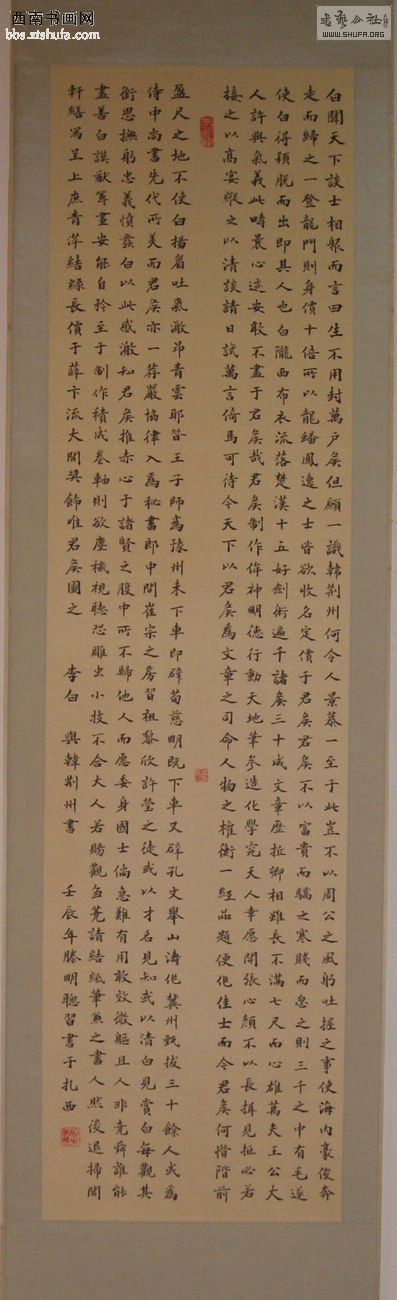 西南书画网
bbs.xtshufa.com
WWW.SHUFA.ORG
白聞天下談士相聚而言曰生不用封萬户侯但願一識韓荆州何令人景慕一至于此豈不以周公之風躬吐握之事使海内豪俊奔
走而歸之一登龍門則身價十倍所以龍蟠鳳逸之士皆欲收名定價于君侯君侯不以富貴而驕之寒賤而忽之則三千之中有毛遂
使白得穎脱而出即其人也白隴西布衣流落楚漢十五好劍術遍干諸侯三十成文章歷抵卿相雖長不滿七尺而心雄萬夫王公大
人許與氣義此疇曩心迹安敢不盡于君侯哉君侯制作侔神明德行動天地筆參造化學究天人幸愿開張心顔不以長揖見拒必若
接之以高宴縱之以清談請日試萬言倚馬可待今天下以君侯為文章之司命人物之權衡一經品題便作佳士而今君侯何惜階前
盈尺之地不使白揚眉吐氣激昂青雲耶昔王子師為豫州未下車即辟荀慈明既下車又辟孔文舉山濤作冀州甄拔三十餘人或為
侍中尚書先代所美而君侯亦一荐嚴協律入為秘書郎中間崔宗之房習祖黎欣許瑩之徒或以才名見知或以清白見賞白每觀其
銜恩撫躬忠義憤發白以此感激知君侯推赤心于諸賢之腹中所不歸他人而愿委身國士倘急難有用敢效微軀且人非堯舜誰能
盡善白謨猷籌畫安能自矜至于制作積成卷軸則欲塵穢視聽恐雕虫小技不合大人若賜觀芻蕘請結紙筆兼之書人然後退掃閒
軒繕寫呈上庶青萍結緑長價于薛卞流大開奬飾唯君侯圖之 李白 與韓荆州書 壬辰年滕明聰習書于扎西